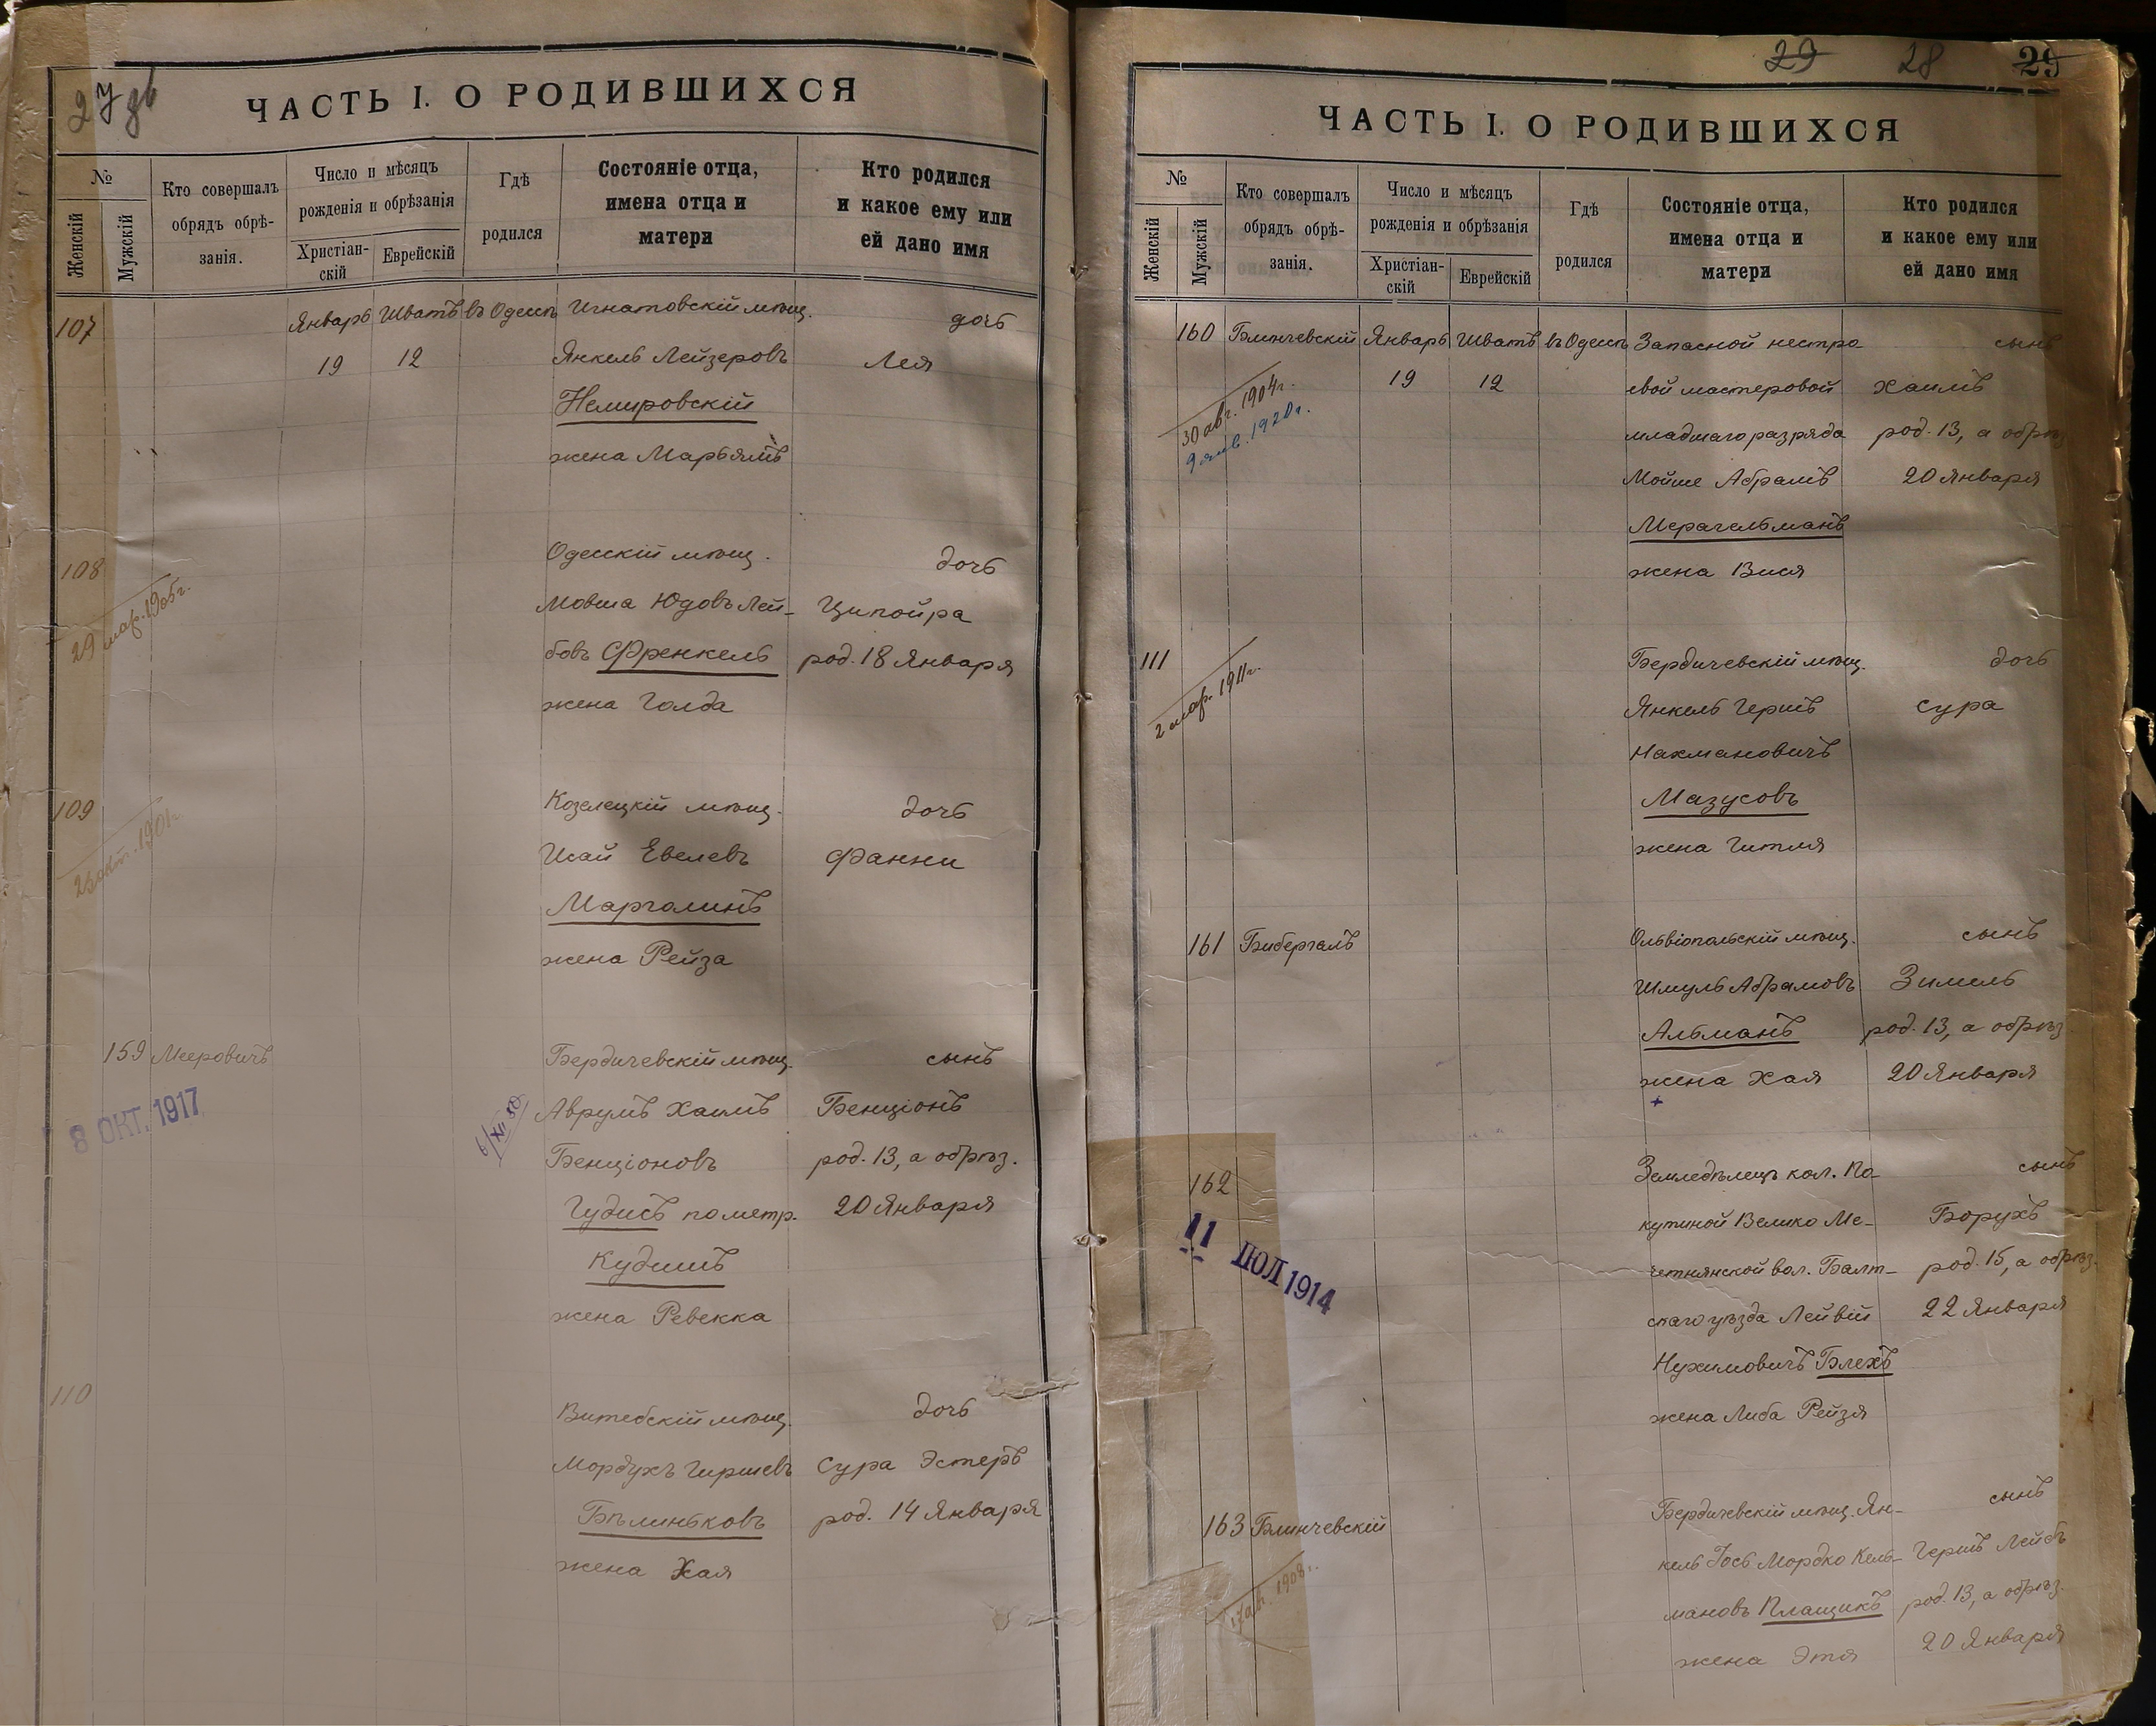 27 об
ЧАСТЬ I. О РОДИВШИХСЯ
№
Женскій
Мужскій
Кто совершалъ
обрядъ обрѣ-
занія.
Число и мѣсяцъ
рожденія и обрѣзанія
Христіан-
скій
Еврейскій
Гдѣ
родился
Состояніе отца,
имена отца и
матери
Кто родился
и какое ему или
ей дано имя
107 Январь Шватъ въ Одессѣ Игнатовскій мѣщ. дочь
19 12 Янкель Лейзеровъ Лея
Немировскій
жена Марьямъ
108 Одесскій мѣщ. дочь
29 мар. 1905 г.
Мовша Юдовъ Лей- Ципойра
бовъ Френкель род. 18 Января
жена Голда
109 Козелецкій мѣщ. дочь
Исай Евелевъ Фанни
Марголинъ
жена Рейза
159 Мееровичъ Бердичевскій мѣщ. сынъ
8 ОКТ. 1917
6/XII 50
Аврумъ Хаимъ Бенціонъ
Бенціоновъ род. 13, а обрѣз.
Гудисъ по метр. 20 Января
Кудишъ
жена Ревекка
110 Витебскій мѣщ. дочь
Мордухъ Гиршевъ Сура Эстеръ
Бѣлиньковъ род. 14 Января
жена Хая
29 28 29
ЧАСТЬ I. О РОДИВШИХСЯ
№
Женскій
Мужскій
Кто совершалъ
обрядъ обрѣ-
занія.
Число и мѣсяцъ
рожденія и обрѣзанія
Христіан-
скій
Еврейскій
Гдѣ
родился
Состояніе отца,
имена отца и
матери
Кто родился
и какое ему или
ей дано имя
160 Блинчевскій Январь Шватъ въ Одессѣ Запасной нестро- сынъ
19 12 евой мастеровой Хаимъ
30 авг. 1904 г.
9 янв. 1920 г.
младшаго разряда род. 13, а обрѣз.
Мойше Абрамъ 20 Января
Мерагельманъ
жена Вися
111 Бердичевскій мѣщ. дочь
2 мар. 1911 г.
Янкель Гершъ Сура
Нахмановичъ
Мазусовъ
жена Гитля
161 Бибергалъ Ольвіопольскій мѣщ. сынъ
Шмуль Абрамовъ Зимель
Альманъ род. 13, а обрѣз.
жена Хая 20 Января
162 Земледѣлецъ кол. По- сынъ
11 ІЮЛ 1914
кутиной Велико Ме- Борухъ
четнянской вол. Балт- род. 15, а обрѣз.
скаго уѣзда Лейвій 22 Января
Нухимовичъ Блехъ
жена Либа Рейзя
163 Блинчевскій Бердичевскій мѣщ. Ян- сынъ
кель Іось Мордко Кель- Гершъ Лейбъ
мановъ Плащикъ род. 13, а обрѣз.
жена Этя 20 Января